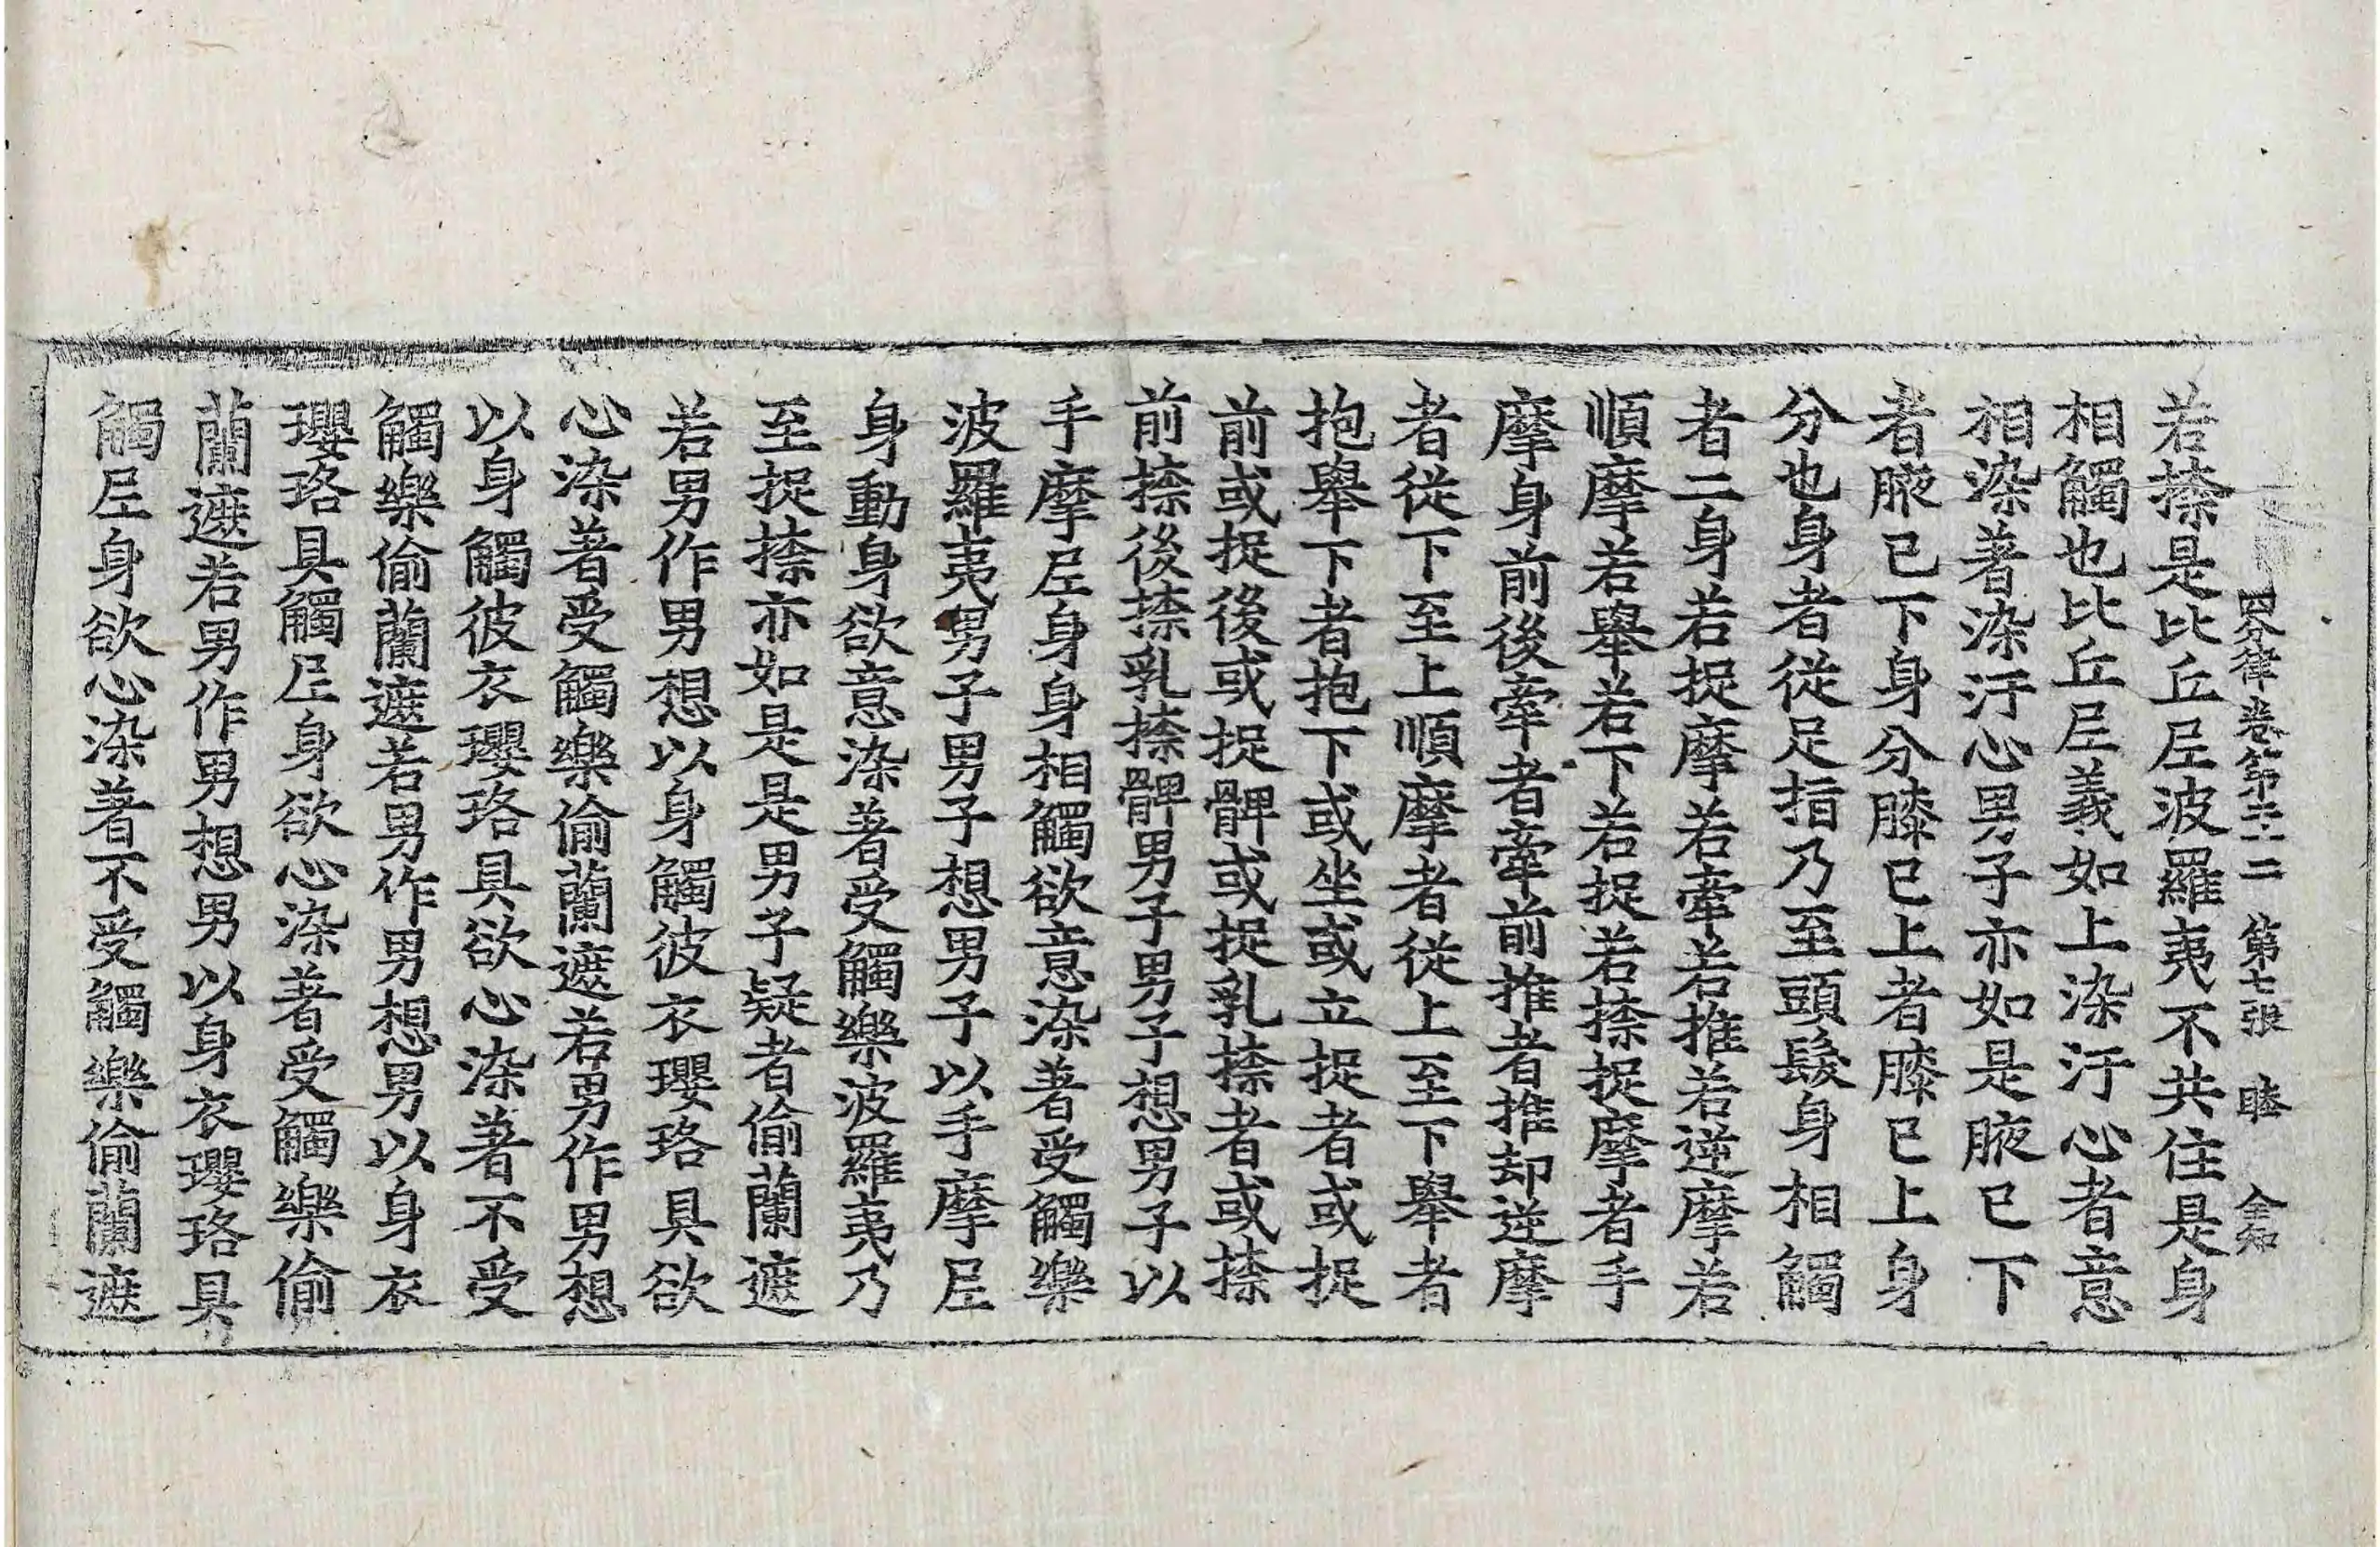 四分律卷第二十二 第七張 睦 金知
若捺是比丘尼波羅夷不共住是身
相觸也比丘尼義如上染汙心者意
相染著染汙心男子亦如是腋已下
者腋已下身分膝已上者膝已上身
分也身者從足指乃至頭髮身相觸
者二身若捉摩若牽若推若逆摩若
順摩若舉若下若捉若捺捉摩者手
摩身前後牽者牽前推者推却逆摩
者從下至上順摩者從上至下舉者
抱舉下者抱下或坐或立捉者或捉
前或捉後或捉髀或捉乳捺者或捺
前捺後捺乳捺髀男子男子想男子以
手摩尼身身相觸欲意染著受觸樂
波羅夷男子男子想男子以手摩尼
身動身欲意染著受觸樂波羅夷乃
至捉捺亦如是是男子疑者偷蘭遮
若男作男想以身觸彼衣瓔珞具欲
心染著受觸樂偷蘭遮若男作男想
以身觸彼衣瓔珞具欲心染著不受
觸樂偷蘭遮若男作男想男以身衣
瓔珞具觸尼身欲心染著受觸樂偷
蘭遮若男作男想男以身衣瓔珞具
觸尼身欲心染著不受觸樂偷蘭遮